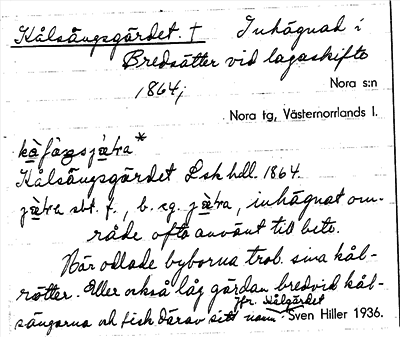 Kålsångsgärdet. † Inhägnad i
Bredsätter vid lagaskifte
1864;
Nora s:n
Nora tg, Västernorrlands l.
Kålsångsgärdet Lskhdl. 1864.
sbt. f., b. sg. inhägnat om-
råde ofta använt till bete.
Här odlade byborna trol. sina kål-
rötter. Eller också låg gärdan bredvid kål-
jfr. Kålgärdet
sängarna och fick därav sitt namn. Sven Hiller 1936.